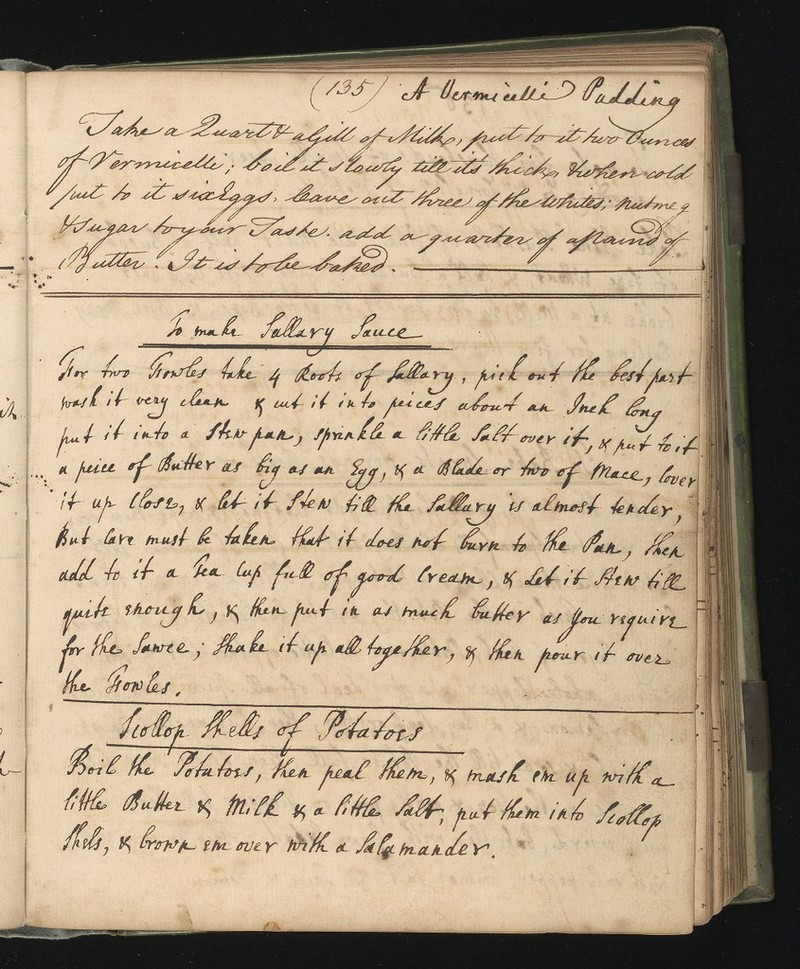 (135) A Vermicelli Pudding
Take a Quart & a Gill of Milk, put to it two Ounces
of Vermicelli; boil it slowly till its thick, & when cold
put to it six Eggs. leave out three of the Whites; nutmeg
& Sugar to your Taste. add a quarter of a Pound of
Butter. It is to be baked.
To make Sallary Sauce
For two Fowles take 4 Roots of Sallary, pick out the best part
wash it very clean & cut it into peices about an Inch long
put it into a Stew pan, sprinkle a little Salt over it, & put to it
a peice of Butter as big as an Egg, & a Blade or two of Mace, Cover
it up Close, & let it Stew till the Sallary is almost tender,
But Care must be taken that it does not burn to the Pan, then
add to it a Tea Cup full of good Cream, & Let it Stew till
quite enough, & then put in as much butter as you require
for the Sawce; Shake it up all together, & then pour it over
the Fowles.
Scollop Shells of Potatoes
Boil the Potatoes, then peal them, & mash em up with a
little Butter & Milk & a little Salt, put them into Scollop
Shels, & brown em over with a Salamander.